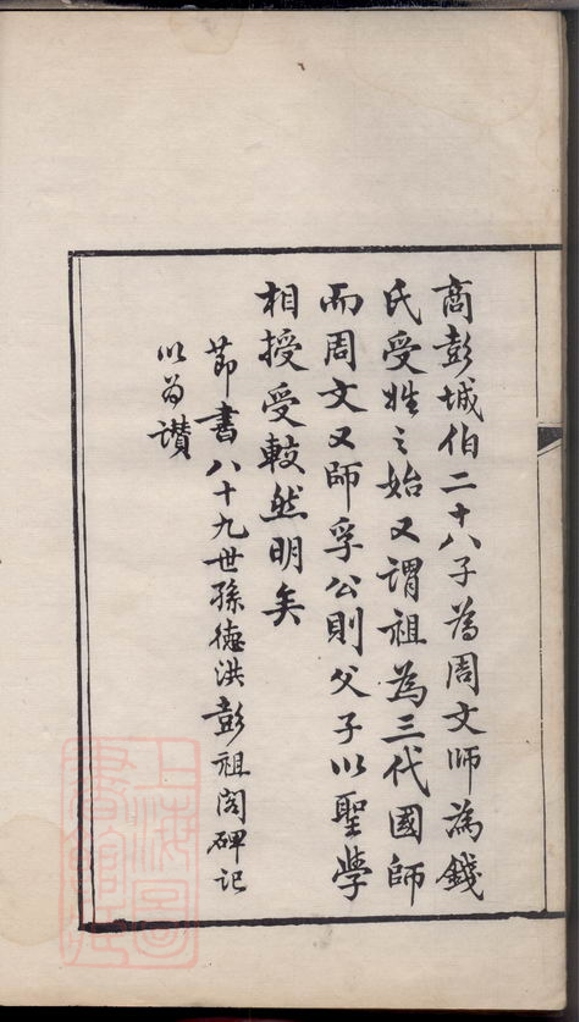 商彭城伯二十八子為周文師為錢
氏受姓之始又謂祖為三代國師
而周文又師孚公則父子以聖學
相授受較然明矣
節書八十九世孫德洪彭祖閣碑記
以為讚
上海圖
書館藏